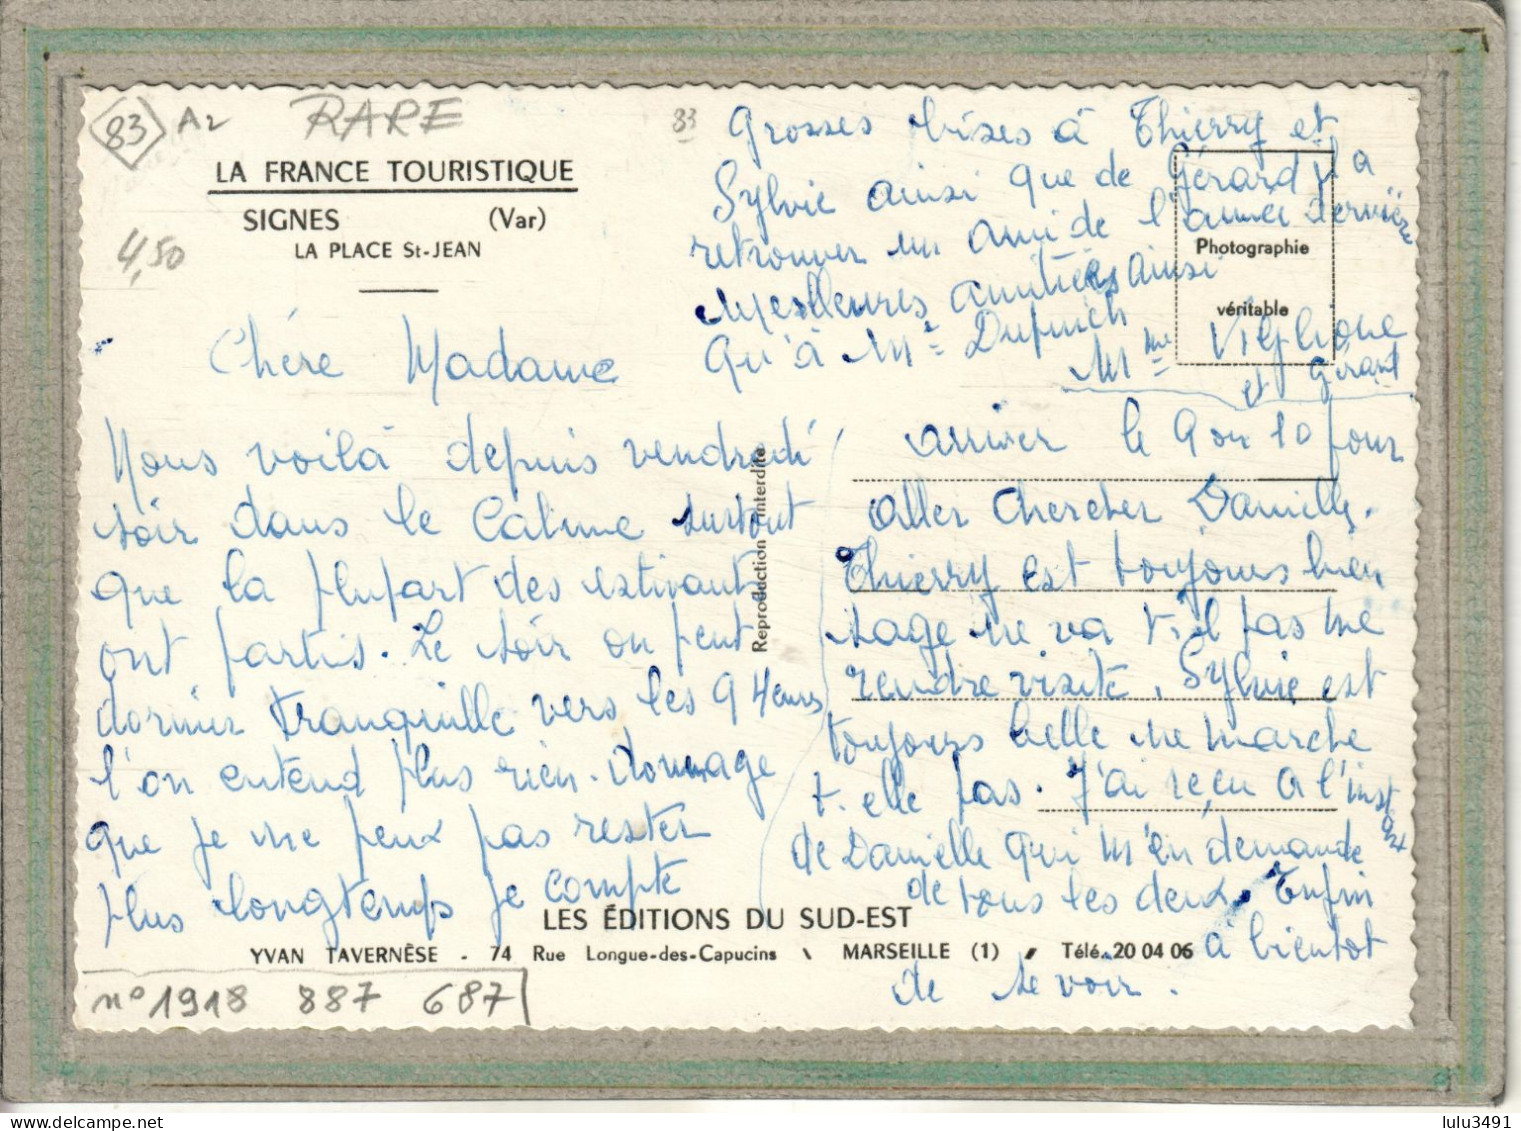 83 A2 RARE 83
LA FRANCE TOURISTIQUE
SIGNES (Var)
LA PLACE St-JEAN
4,50
Chére Madame
Nous voilà depuis vendredi
soir dans le Calme surtout
que la plupart des estivants
ont partis. Le soir on peut
dormir tranquille vers les 9 Heures
l'on entend plus rien. domage
que je ne peux pas rester
plus longtemps je compte
arriver le 9 ou 10 pour
aller chercher Danielle.
Thierry est toujours bien
sage ne va t-il pas me
rendre visite, Sylvie est
toujours belle ne marche
t-elle pas. J'ai reçu a l'instant
de Danielle qui m'en demande
de tous les deux, Enfin
à bientot
de se voir.
Grosses bises à Thierry et
Sylvie ainsi que de Gérard Il a
retrouver un ami de l'année dernière
Meilleures amitiés ainsi
qu'à Mr Dupuich
Mme Viglione
et Gérard
Photographie
véritable
Reproduction interdite
LES ÉDITIONS DU SUD-EST
YVAN TAVERNÈSE - 74 Rue Longue-des-Capucins \ MARSEILLE (1) Télé. 20 04 06
n° 1918 887 687
delcampe.net
lulu3491